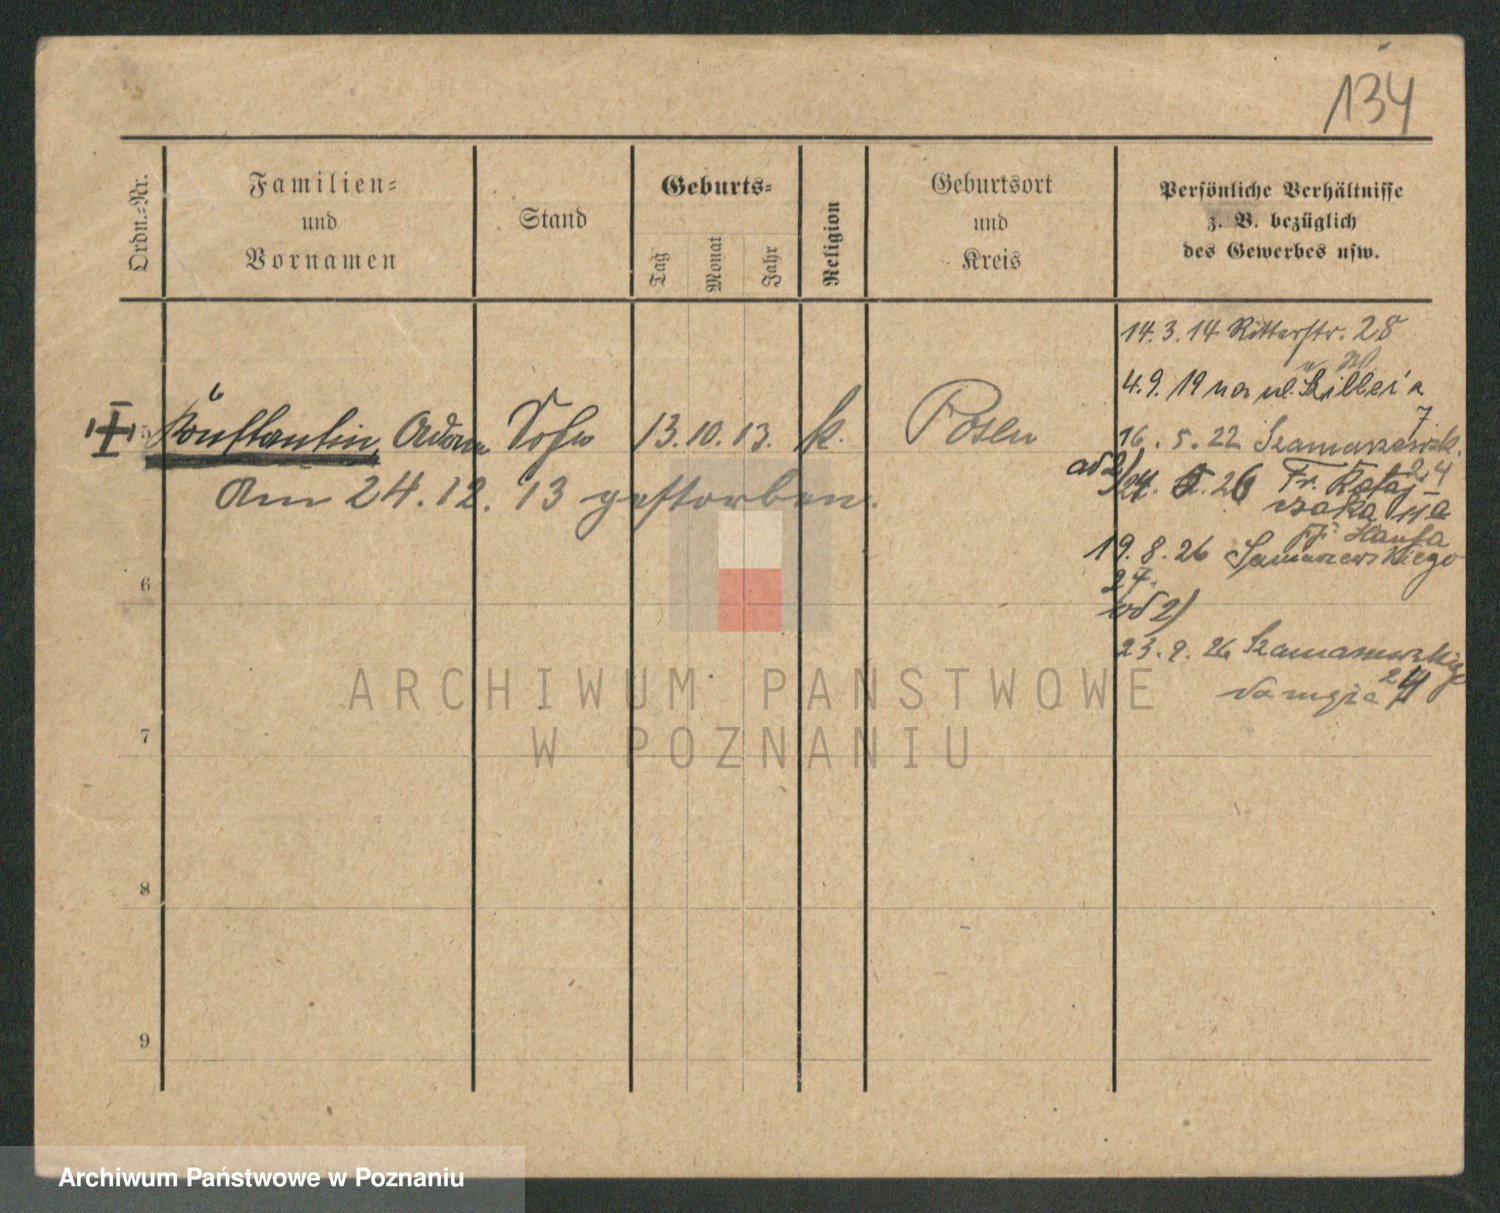 134
Ordn.-Nr.
Familien-
und
Vornamen
Stand
Geburts-
Tag
Monat
Jahr
Religion
Geburtsort
und
Kreis
Persönliche Verhältnisse
z. B. bezüglich
des Gewerbes usw.
14.3.14 Ritterstr. 28
4.9.19 na ul.
7
5 Konstantin, Adam Sohn 13.10.13. k. Posen
16.5.22 Szamarzewsk.
24
Am 24.12.13 gestorben.
ad 2)
26 Fr. Rataj
czaka 11a
19.8.26 Szamarzewskiego
24.
ad 2)
23.9.26 Szamarzewskiego
24
6
7
8
9
ARCHIWUM PAŃSTWOWE
W POZNANIU
Archiwum Państwowe w Poznaniu